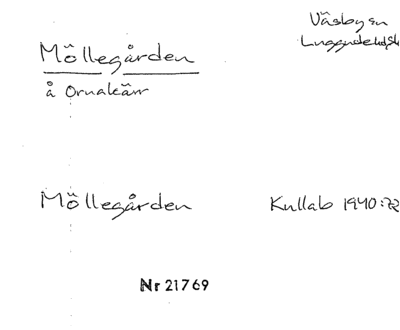 Väsby sn
Luggude hd
Möllegården
å Ornakärr
Möllegården
Kullab 1940:72
Nr 21769